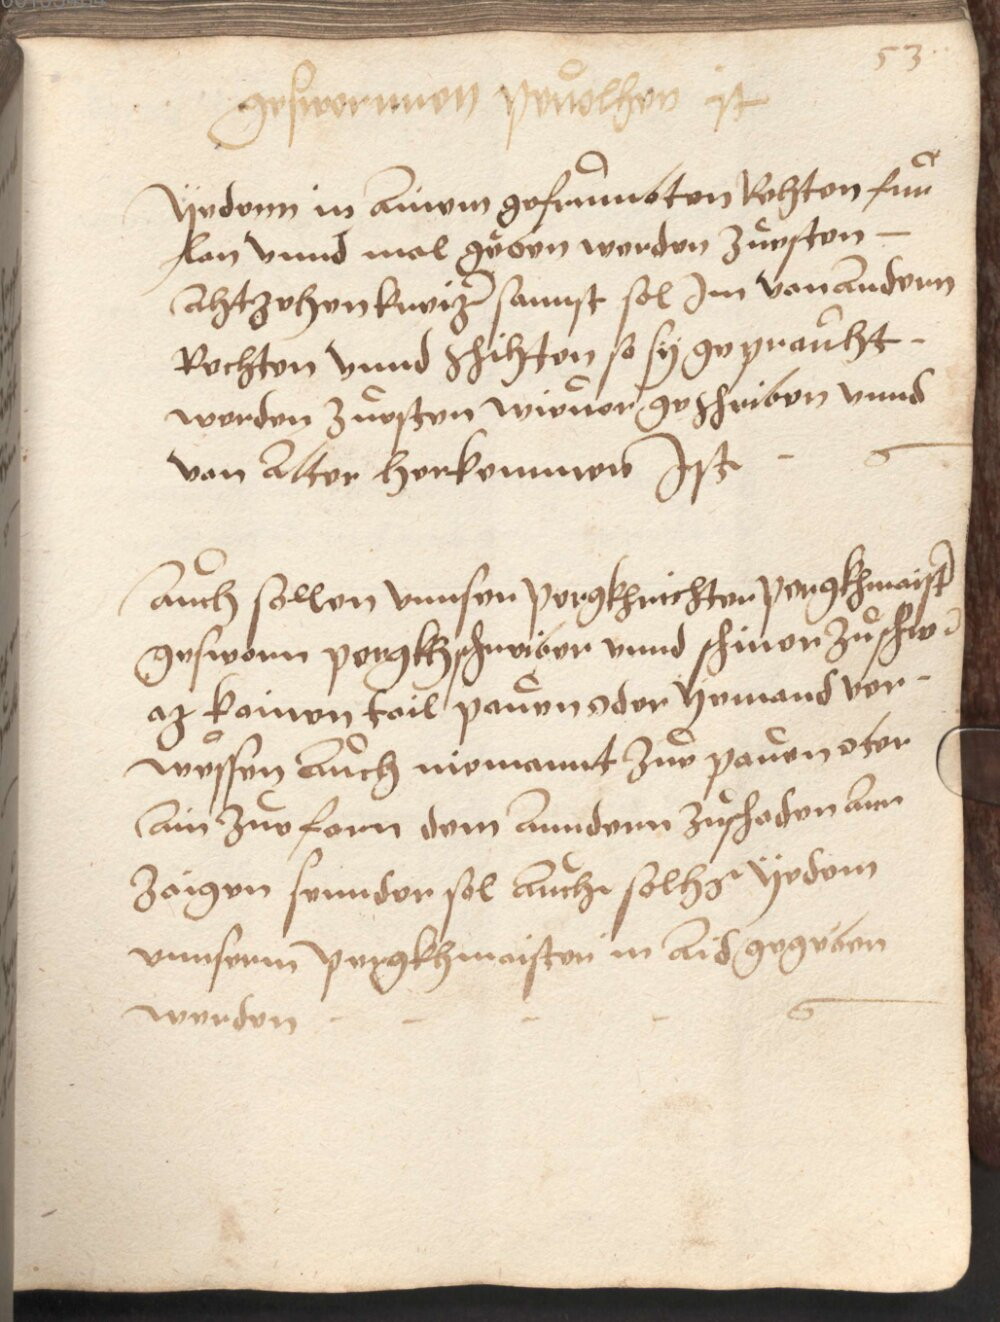 53
geswornnen peuolhen ist
Yedem in ainem gefrümbten Rechten für
lon vnnd mal geben werden zuesten
Ahtzehen kreizer sannst sol Im von Andern
Rechten vnnd Schihten so sy gepraucht
werden zuesten wieuor geschriben vnnd
von Alter herkommen Ist
Auch sollen vnnser pergkhrichter pergkhmaister
gesworn pergkhschreiber vnnd schiner zu
kainen tail pauen oder yemand ver
wessen Auch niemannt zue pauen oder
Ain zue farn dem Anndern zuschaden Ann
Zaigen sunnder sol Auch solhs yedem
vnnserm pergkhmaister in Aid gegeben
werden